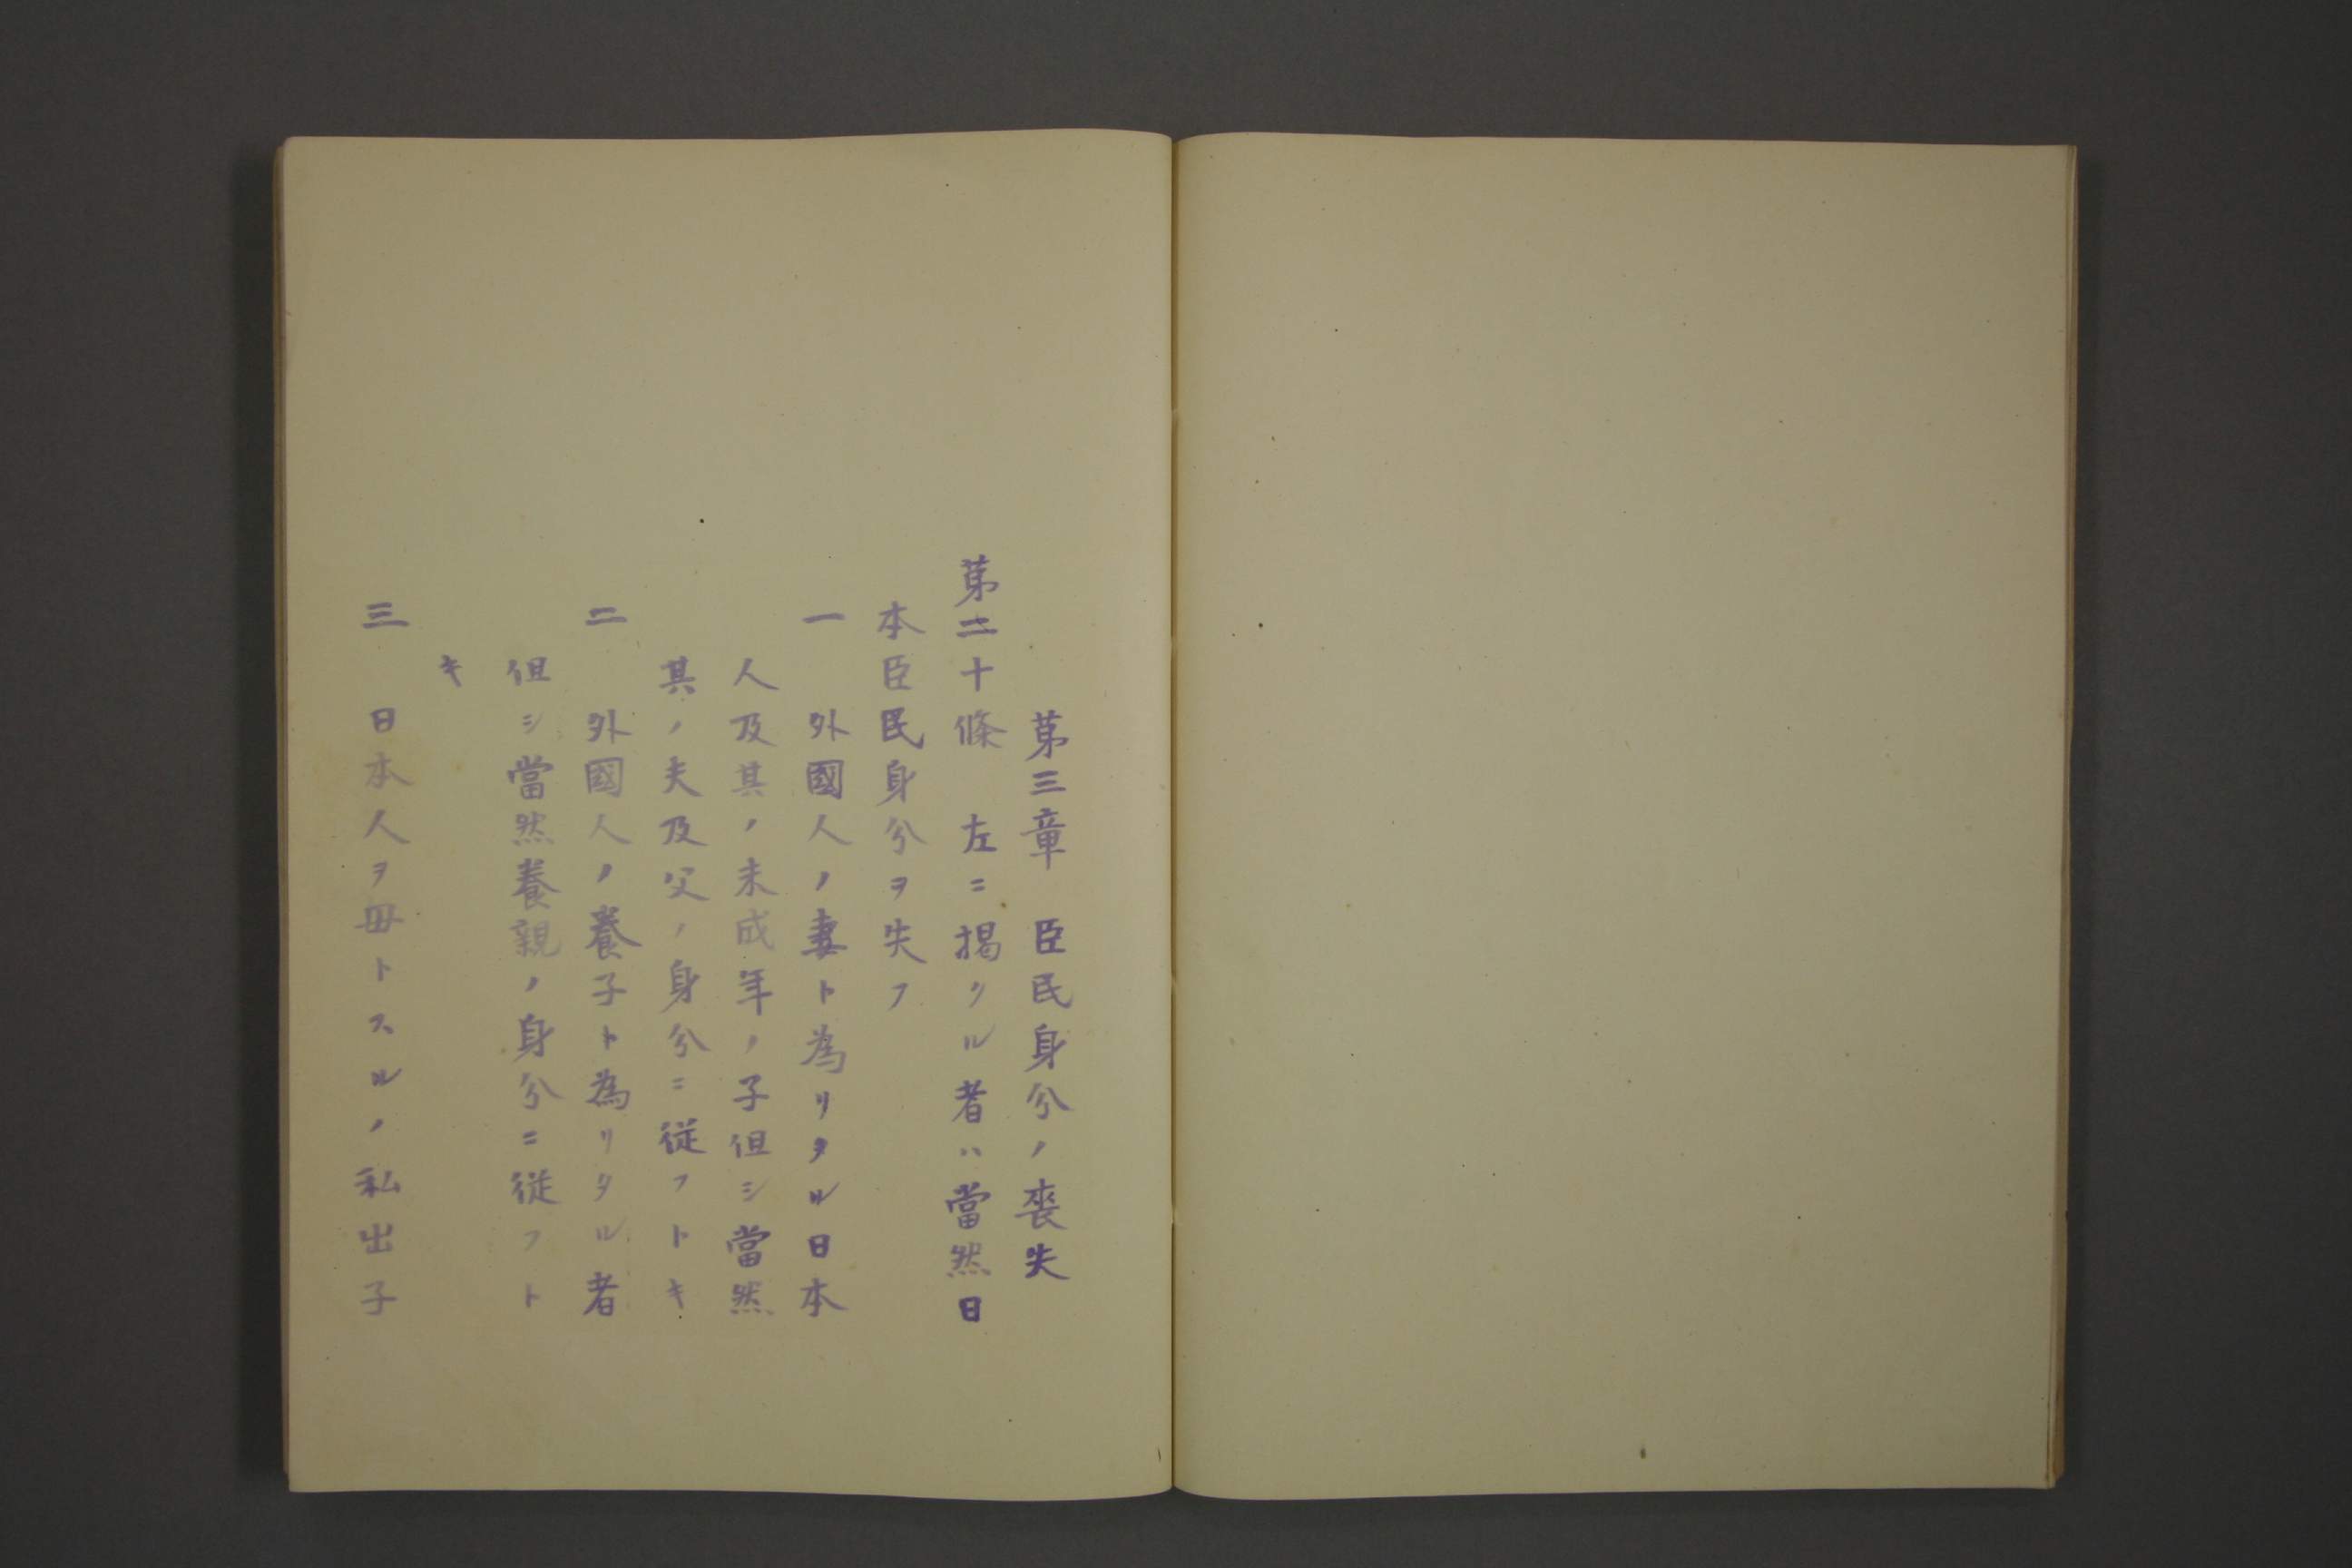 第三章　臣民身分ノ喪失
第二十條　左ニ揭クル者ハ當然日
本臣民身分ヲ失フ
一　外國人ノ妻ト為リタル日本
人及其ノ未成年ノ子但シ當然
其ノ夫及父ノ身分ニ從フトキ
二　外國人ノ養子ト為リタル者
但シ當然養親ノ身分ニ從フト
キ
三　日本人ヲ母トスルノ私出子